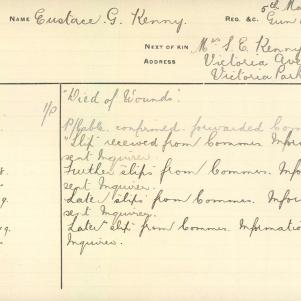 NAME Eustace. G. Kenny. REG. &C. 5th Ma
Gun
NEXT OF KIN Mrs S. E. Kenny
ADDRESS Victoria Ave
Victoria Park
1/P "Died of Wounds."
P/Cable. confirmed. forwarded Comm
"Slip" received from Commes. Infor
sent Inquirer.
Further slips from Commes.
sent Inquirer.
Late slips from Commes. Infor
sent Inquirer.
Later slip from Commes. Informatio
Inquirer.